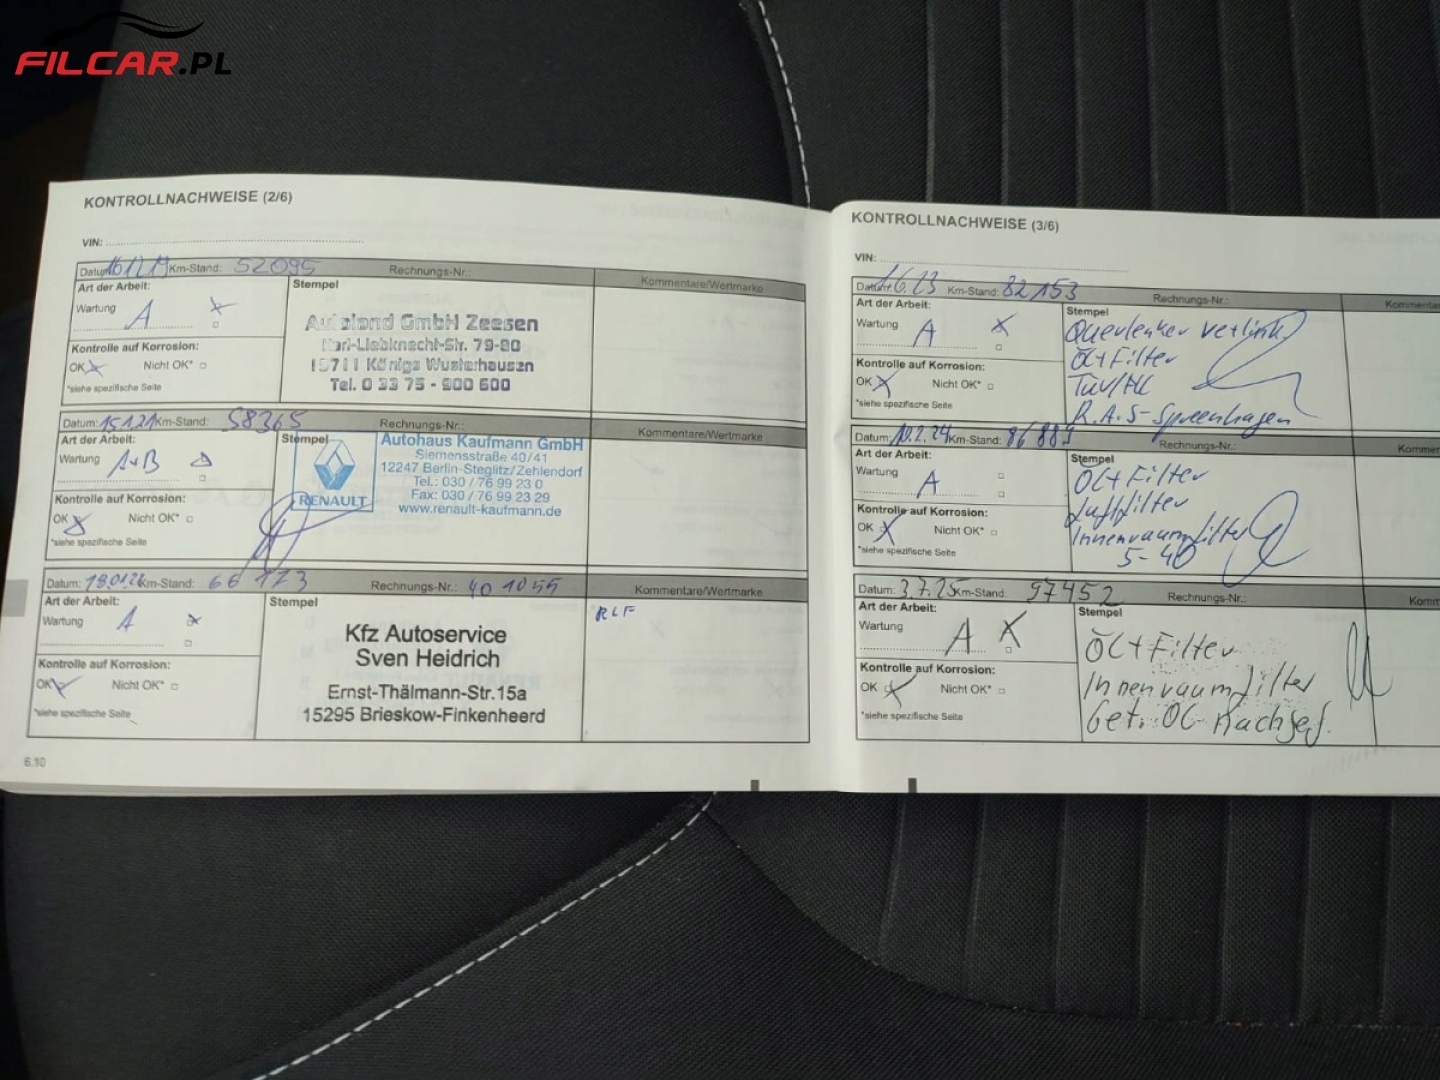 FILCAR.PL
KONTROLLNACHWEISE (2/6)
VIN:
Datum: 16.12.19 Km-Stand: 52095 Rechnungs-Nr.: Kommentare/Wertmarke
Art der Arbeit: Stempel
Wartung A
Autoland GmbH Zeesen
Karl-Liebknecht-Str. 79-80
15711 Königs Wusterhausen
Tel. 0 33 75 - 900 600
Kontrolle auf Korrosion:
OK Nicht OK*
*siehe spezifische Seite
Datum: 15.1.21 Km-Stand: 58365 Rechnungs-Nr.: Kommentare/Wertmarke
Art der Arbeit: Stempel
Wartung A+B
RENAULT
Autohaus Kaufmann GmbH
Siemensstraße 40/41
12247 Berlin-Steglitz/Zehlendorf
Tel.: 030 / 76 99 23 0
Fax: 030 / 76 99 23 29
www.renault-kaufmann.de
Kontrolle auf Korrosion:
OK Nicht OK*
*siehe spezifische Seite
Datum: Km-Stand: 66 173 Rechnungs-Nr.: 401055 Kommentare/Wertmarke
Art der Arbeit: Stempel
Wartung A
Kfz Autoservice
Sven Heidrich
Ernst-Thälmann-Str.15a
15295 Brieskow-Finkenheerd
RLF
Kontrolle auf Korrosion:
OK Nicht OK*
*siehe spezifische Seite
6.10
KONTROLLNACHWEISE (3/6)
VIN:
Datum: 1.6.23 Km-Stand: 82153 Rechnungs-Nr.: Kommentar
Art der Arbeit: Stempel
Wartung A
Querlenker
Öl+Filter
R.A.S-Spreenhagen
Kontrolle auf Korrosion:
OK Nicht OK*
*siehe spezifische Seite
Datum: Km-Stand: 86889 Rechnungs-Nr.: Kommen
Art der Arbeit: Stempel
Wartung A
Öl+Filter
Luftfilter
Innenraumfilter
5-40
Kontrolle auf Korrosion:
OK Nicht OK*
*siehe spezifische Seite
Datum: 3.7.25 Km-Stand: 97452 Rechnungs-Nr.: Komm
Art der Arbeit: Stempel
Wartung A
Öl+Filter
Innenraumfilter
Get. Öl Nachgef.
Kontrolle auf Korrosion:
OK Nicht OK*
*siehe spezifische Seite